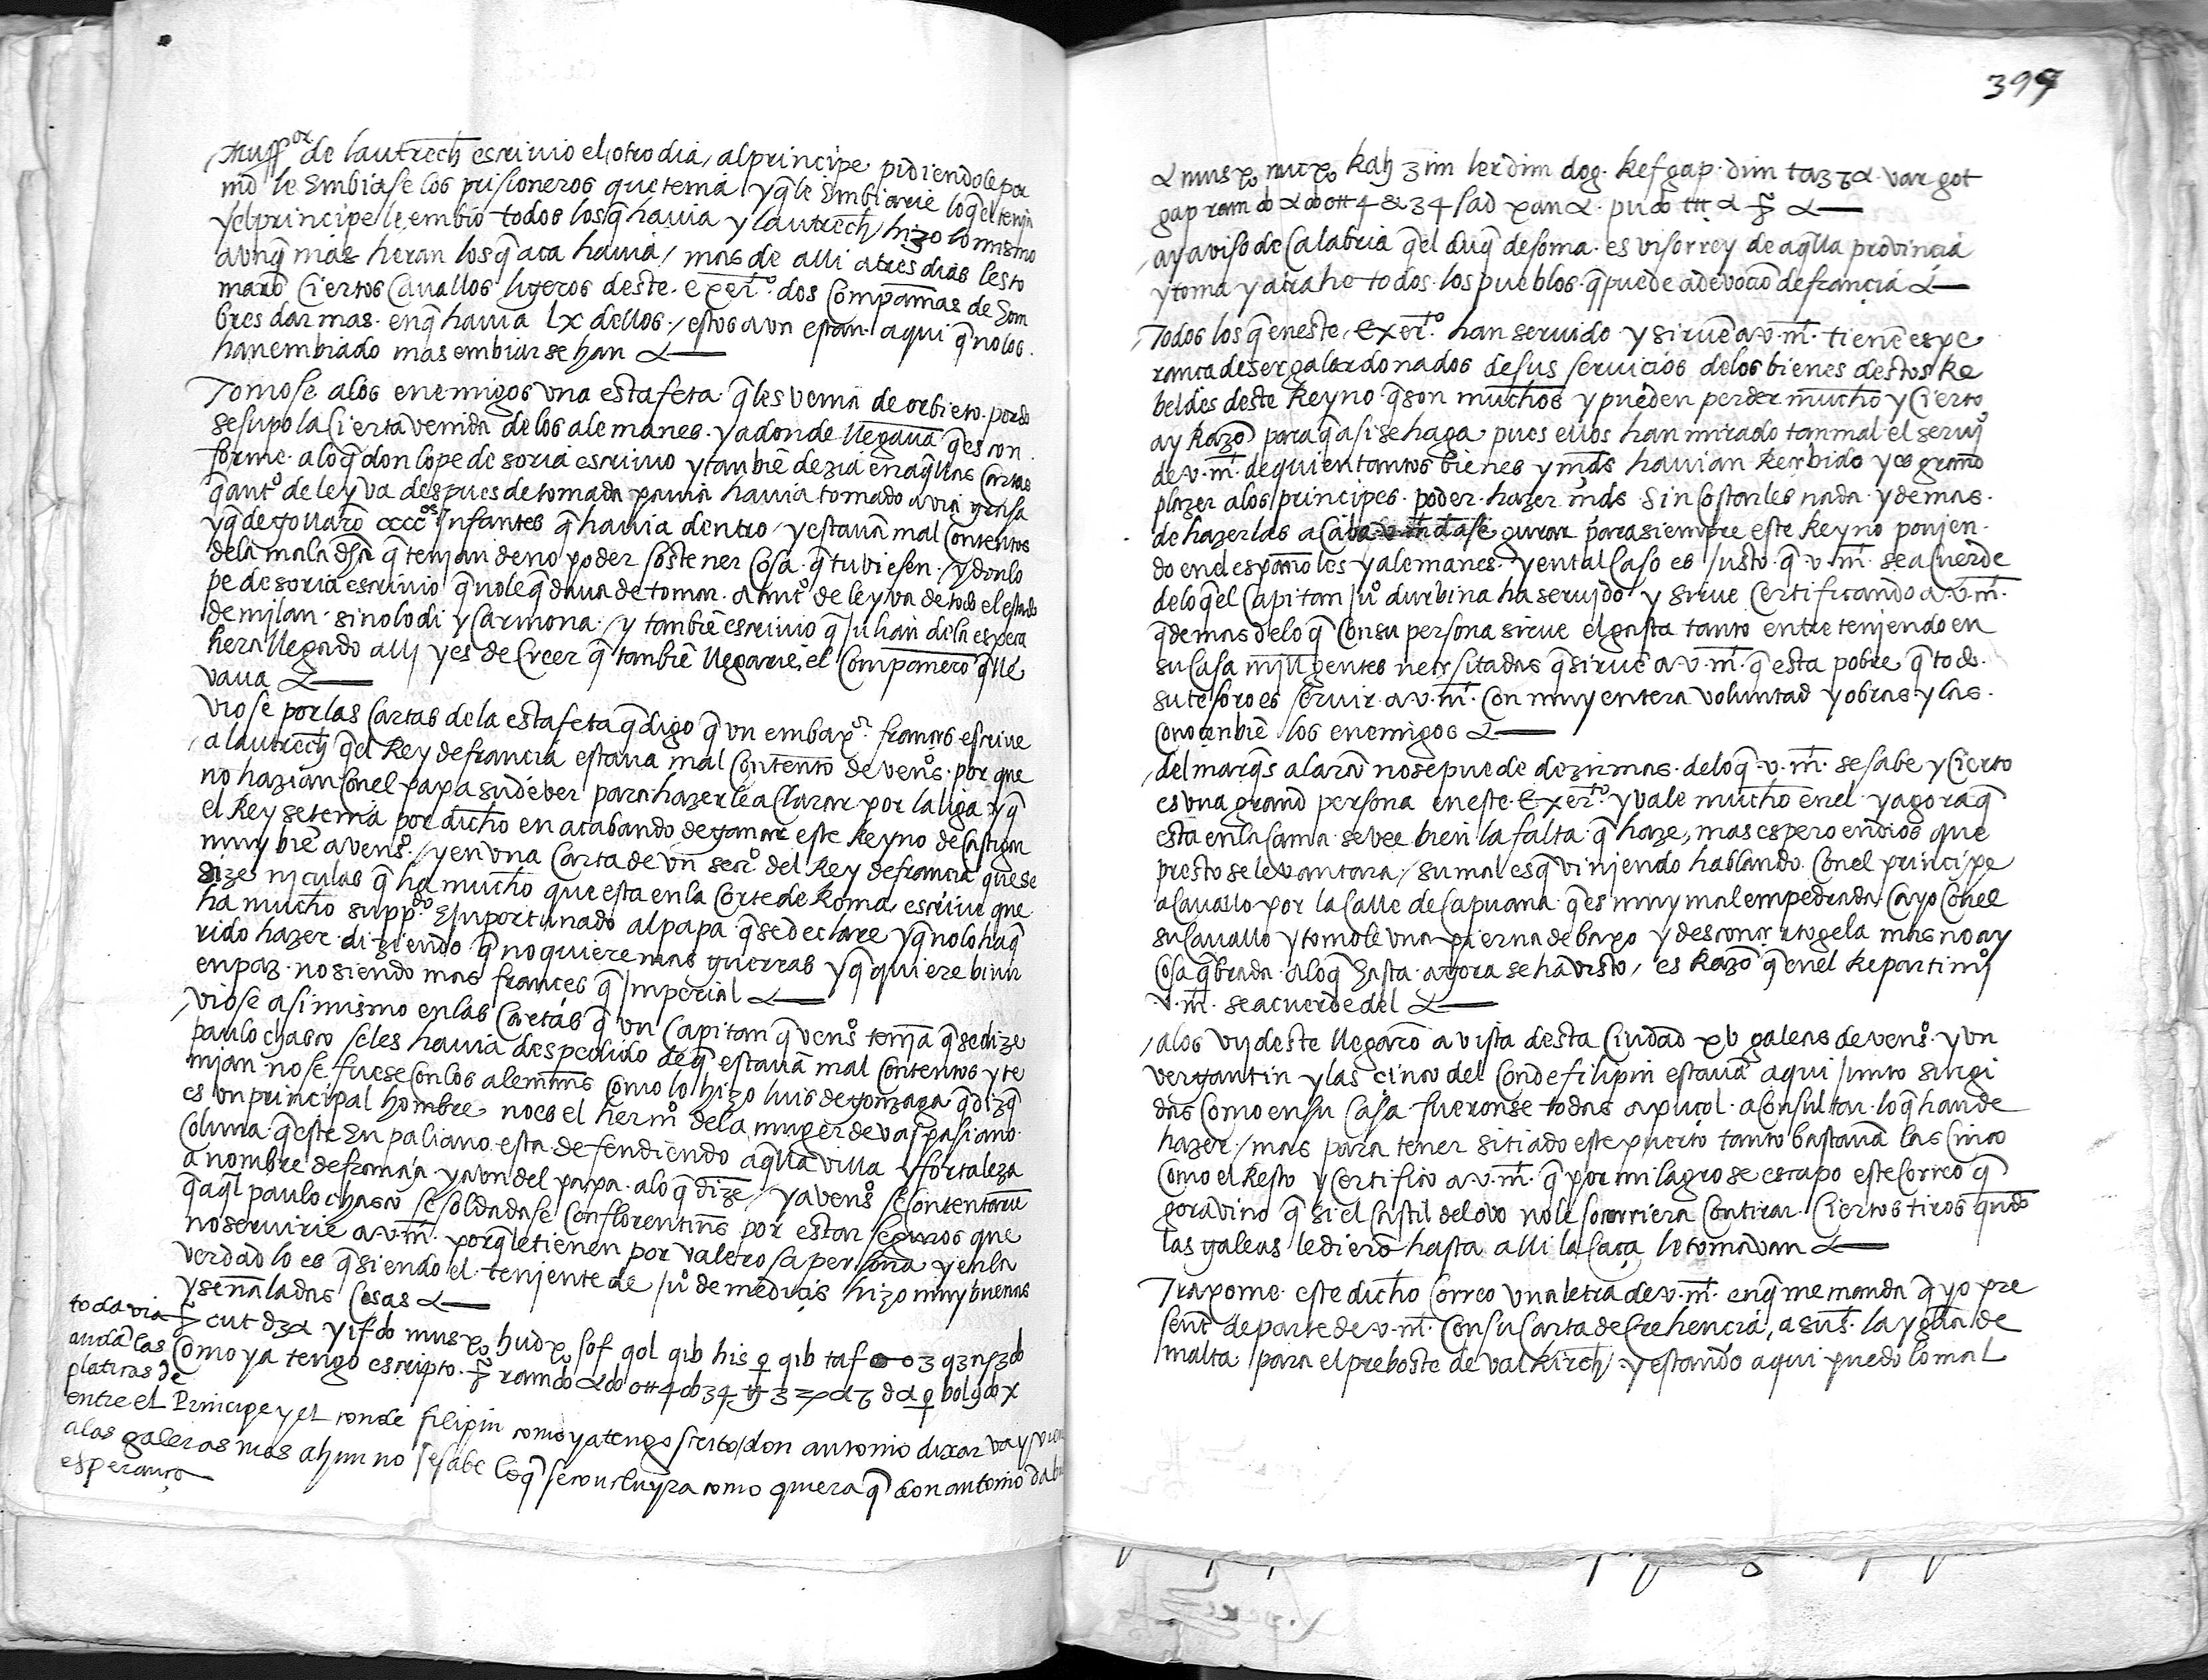 mussor de lautrech escriuio el otro dia, al principe pidiendole por
md le Embiase los prisioneros que tenia / y q̃ le Embiarie lo q̃ el tenia
y el principe le embio todos los q̃ hauia y lautrech / hizo lo mismo
avnq̃ mas heran los q̃ aca hauia / mas de alli a tres dias les to
marō Ciertos Cavallos ligeros deste exerto. dos Compañias de Hom
bres darmas. en q̃ hauia lx dellos / estos avn estan aqui q̃ no los
han embiado mas embiarse han
Tomose alos enemigos vna estafeta q̃ les venia de orbieto. por do
se supo la Cierta venida de los alemanes. y adonde llegaua q̃ es con
forme. alo q̃ don lope de soria escriuio y tanbiē dezia en aq̃llas Cartas
q̃ anto de leyva despues de tomada pauia hauia tomado a via grasa
y q̃ degollarō ccccos Infantes q̃ hauia dentro / y estauā mal Contentos
dela mala dha q̃ tenian de no poder sostener Cosa q̃ tuviesen / y don lo
pe de soria escriuio q̃ no le q̃daua de tomar. a anto de leyva de todo el estado
de milan. sino lodi y Carmona / y tambiē escriuio q̃ Juhan dela espera
hera llegado alli y es de Creer q̃ tanbiē llegarie, el Compañero q̃ lle
vaua
viose por las Cartas dela estafeta q̃ digo q̃ vn embaxor frances escriue
a lautrech q̃ el Rey de francia estaua mal Contento de venos. por que
no hazian Con el papa su deber para hazerle aclarar por la liga y q̃
el Rey se tenia por dicho en acabando de ganar este Reyno de Castigar
muy biē a venos. / y en vna Carta de vn secro del Rey de francia que se
dize niculas q̃ ha mucho que esta en la Corte de Roma, escriue que
ha mucho suppdo e Inportunado al papa q̃ se declare y q̃ no lo ha q̃
rido hazer diziendo q̃ no quiere mas guerras y q̃ quiere biuir
en paz. no siendo mas frances q̃ Imperial
viose asi mismo en las Cartas q̃ vn Capitan q̃ venos tenia q̃ se dize
paulo chasco se les hauia despedido de q̃ estauā mal Contentos y te
mian no se fuese Con los alemanes Como lo hizo luis de gonzaga q̃ dizq̃
es vn principal hombre. no es el hermo dela muger de vaspasiano
Coluna. q̃ este En paliano esta defendiendo aq̃lla villa y fortaleza
a nombre de francia y avn del papa. alo q̃ dize / y a venos se Contentariē
q̃ aq̃l paulo chasco se soldadase Con florentins por estar seguros que
no seruirie a v. mt. porq̃ le tienen por valerosa persona y en la
verdad lo es q̃ siendo el teniente de Juo de medicis hizo muy buenas
y señaladas Cosas
todavia cut yif mus hud sof gol qib his qib taf
andā las Como ya tengo escripto. ram
platicas de
entre el Principe y el conde filipin como ya tengo scrito / don antonio dixar va y viene
alas galeras mas ahun no se sabe lo q̃ se concluyra como quiera q̃ don antonio da buena
esperança
399
mus nuc kah 3 im lerdim dog. kef gap. dim taz var got
gap ram sad pan pu
ay aviso de Calabria q̃ el duq̃ de soma. es visorrey de aq̃lla provincia
y toma y atrahe todos. los pueblos. q̃ puede a devocō de francia
Todos los q̃ en este, Exerto han seruido y siruē a v. mt. tienē espe
rança de ser galardonados de sus seruicios delos bienes destos Re
beldes deste Reyno q̃ son muchos y pueden perder mucho y Cierto
ay Razō para q̃ asi se haga, pues ellos han mirado tan mal el serujo
de v. mt. de quien tantos bienes y mds hauian Recibido y es grand
plazer alos principes. poder. hazer mds. sin Costarles nada. y demas.
de hazerlas a Ca gurar para siempre este Reyno ponien.
do en el españoles y alemanes. y en tal Caso es Justo. q̃ v. mt. se acuerde
delo q̃ el Capitan Juo durbina ha seruido y sirue Certificando a. v. mt.
q̃ demas delo q̃ Con su persona sirue el gasta tanto entreteniendo en
su Casa mill gentes necesitadas q̃ siruē a v. mt. q̃ esta pobre q̃ todo.
su tesoro es seruir. a v. mt. Con muy entera voluntad y obras y las.
Conocen biē los enemigos
del marq̃s alarcō no se puede dezir mas. delo q̃ v. mt. se sabe y Cierto
es vna grand persona en este Exerto y vale mucho en el. y agora q̃
esta en la Cama se vee bien la falta q̃ haze, mas espero en dios que
presto se levantara / su mal es q̃ viniendo hablando. Con el principe
a Cauallo por la Calle de Capuana q̃ es muy mal empedrada Cayo Con el
su Cauallo y tomole vna pierna debaxo y desconcertogela mas no ay
Cosa q̃brada alo q̃ hasta agora se ha visto / es Razō q̃ en el Repartimio
v. mt. se acuerde del
alos vij deste llegarō a vista desta Ciudad xv galeas de venos. y vn
vergantin y las cinco del Conde filipin estauā aqui Junto surgi
das Como en su Casa fueronse todas a puçol. a Consultar. lo q̃ han de
hazer / mas para tener sitiado este puerto tanto bastauā las Cinco
Como el Resto y Certifico a v. mt. q̃ por milagro se escapo este Correo q̃
gora vino q̃ si el Castil delovo no le socorriera Con tirar. Ciertos tiros qndo
las galeas le dierō hasta alli la Caça le tomavan
Traxome este dicho Correo vna letra de v. mt. en q̃ me manda q̃ yo pre
sente de parte de v. mt. Con su Carta de Crehencia, a su s. la ygłia de
malta para el preboste de val kirch / y estando aqui puedo lo mal